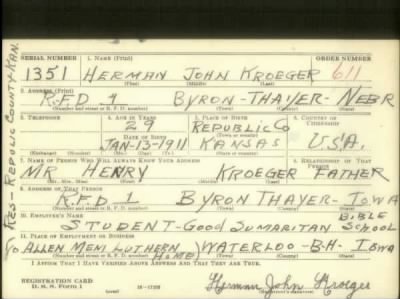 SERIAL NUMBER 1. NAME (Print) ORDER NUMBER
1351 HERMAN JOHN KROEGER 611
(First) (Middle) (Last)
2. ADDRESS (Print)
R.F.D 4 BYRON-THAYER-NEBR
(Number and street or R. F. D. number) (Town) (County) (State)
3. TELEPHONE 4. AGE IN YEARS 5. PLACE OF BIRTH 6. COUNTRY OF CITIZENSHIP
29 REPUBLIC Co
DATE OF BIRTH (Town or county)
JAN-13-1911 KANSAS U.S.A.
(Exchange) (Number) (Mo.) (Day) (Yr.) (State or country)
7. NAME OF PERSON WHO WILL ALWAYS KNOW YOUR ADDRESS 8. RELATIONSHIP OF THAT PERSON
MR. HENRY KROEGER FATHER
(Mr., Mrs., Miss) (First) (Middle) (Last)
9. ADDRESS OF THAT PERSON
R.F.D. 1 BYRON THAYER-IOWA
(Number and street or R. F. D. number) (Town) (County) (State)
10. EMPLOYER'S NAME BIBLE
STUDENT-GOOD SUMARITAN SCHOOL
11. PLACE OF EMPLOYMENT OR BUSINESS
% ALLEN MEMI LUTHERN HOME) WATERLOO-B-H- IOWA
(Number and street or R. F. D. number) (Town) (County) (State)
I AFFIRM THAT I HAVE VERIFIED ABOVE ANSWERS AND THAT THEY ARE TRUE.
REGISTRATION CARD
D. S. S. Form 1 (over) 16—17105 Herman John Kroeger
RES-REPUBLIC COUNTY-KAN.